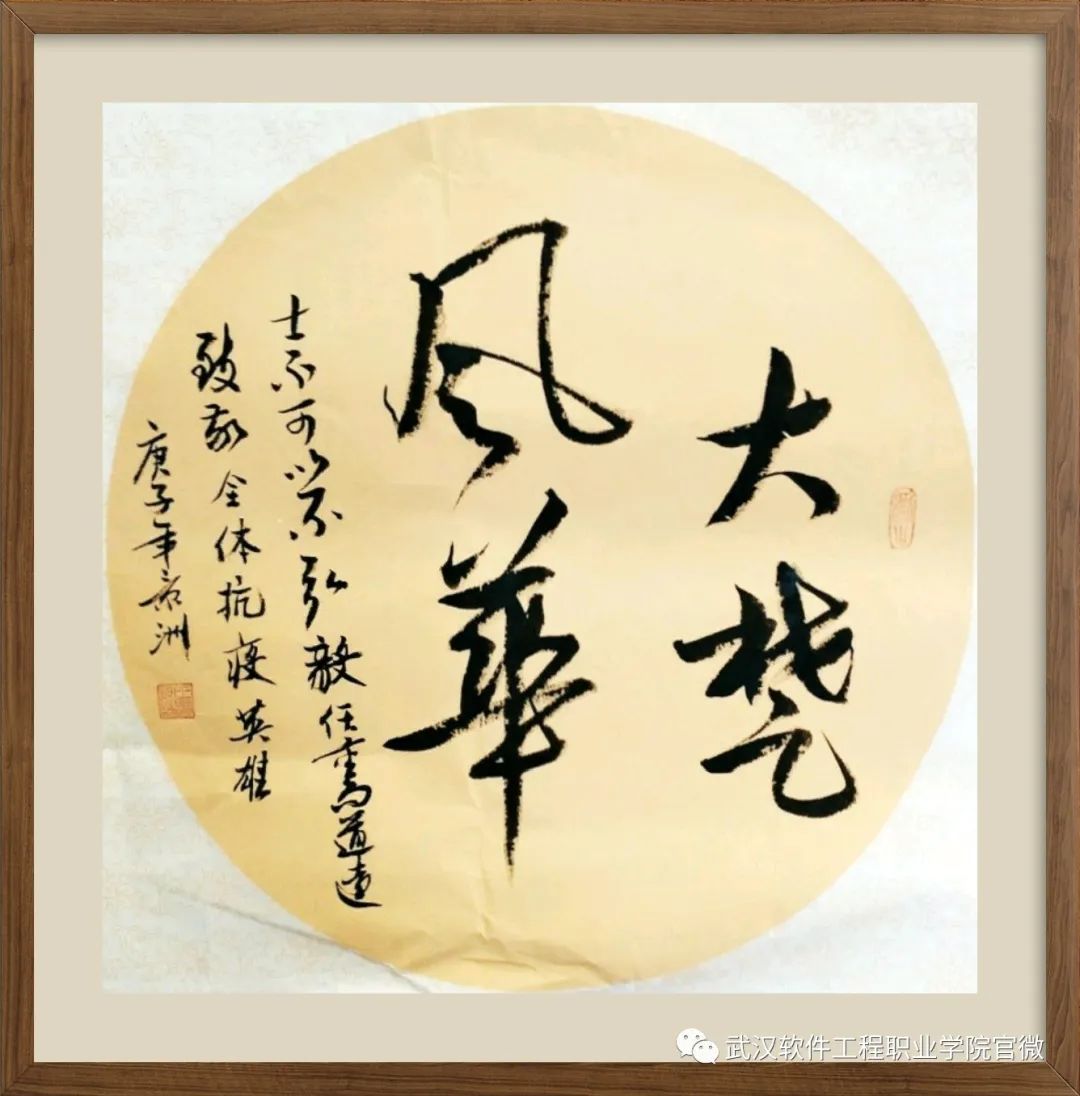 大楚
风华
士不可以不弘毅任重而道远
致敬全体抗疫英雄
庚子年
洲
武汉软件工程职业学院官微